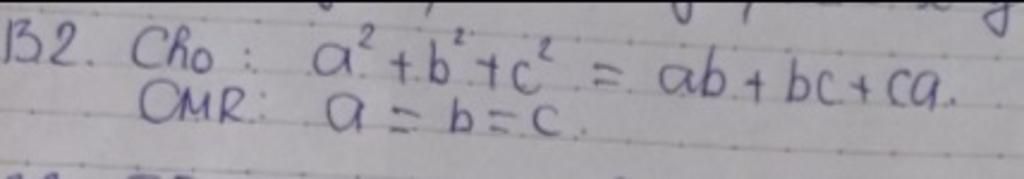 B2. Cho : a² + b² + c² = ab + bc + ca.
CMR: a = b = c.